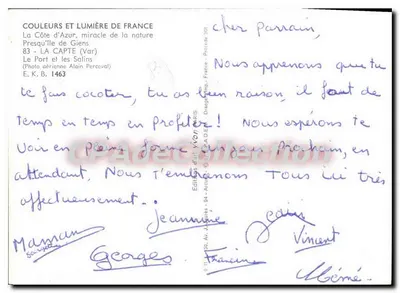 COULEURS ET LUMIÈRE DE FRANCE
La Côte d'Azur, miracle de la nature
Presqu'Ile de Giens
83 - LA CAPTE (Var)
Le Port et les Salins
(Photo aérienne Alain Perceval)
E. K. B. 1463
cher parrain,
Nous apprenons que tu
te fais cocoter, tu as bien raison, il faut de
temps en temps en profiter! Nous espérons te
voir en pleine forme prochain, en
attendant. Nous t'embrassons Tous très
affectueusement..
Jeannine
Jean
Maman
Georges
Francine
Vincent
Mémé